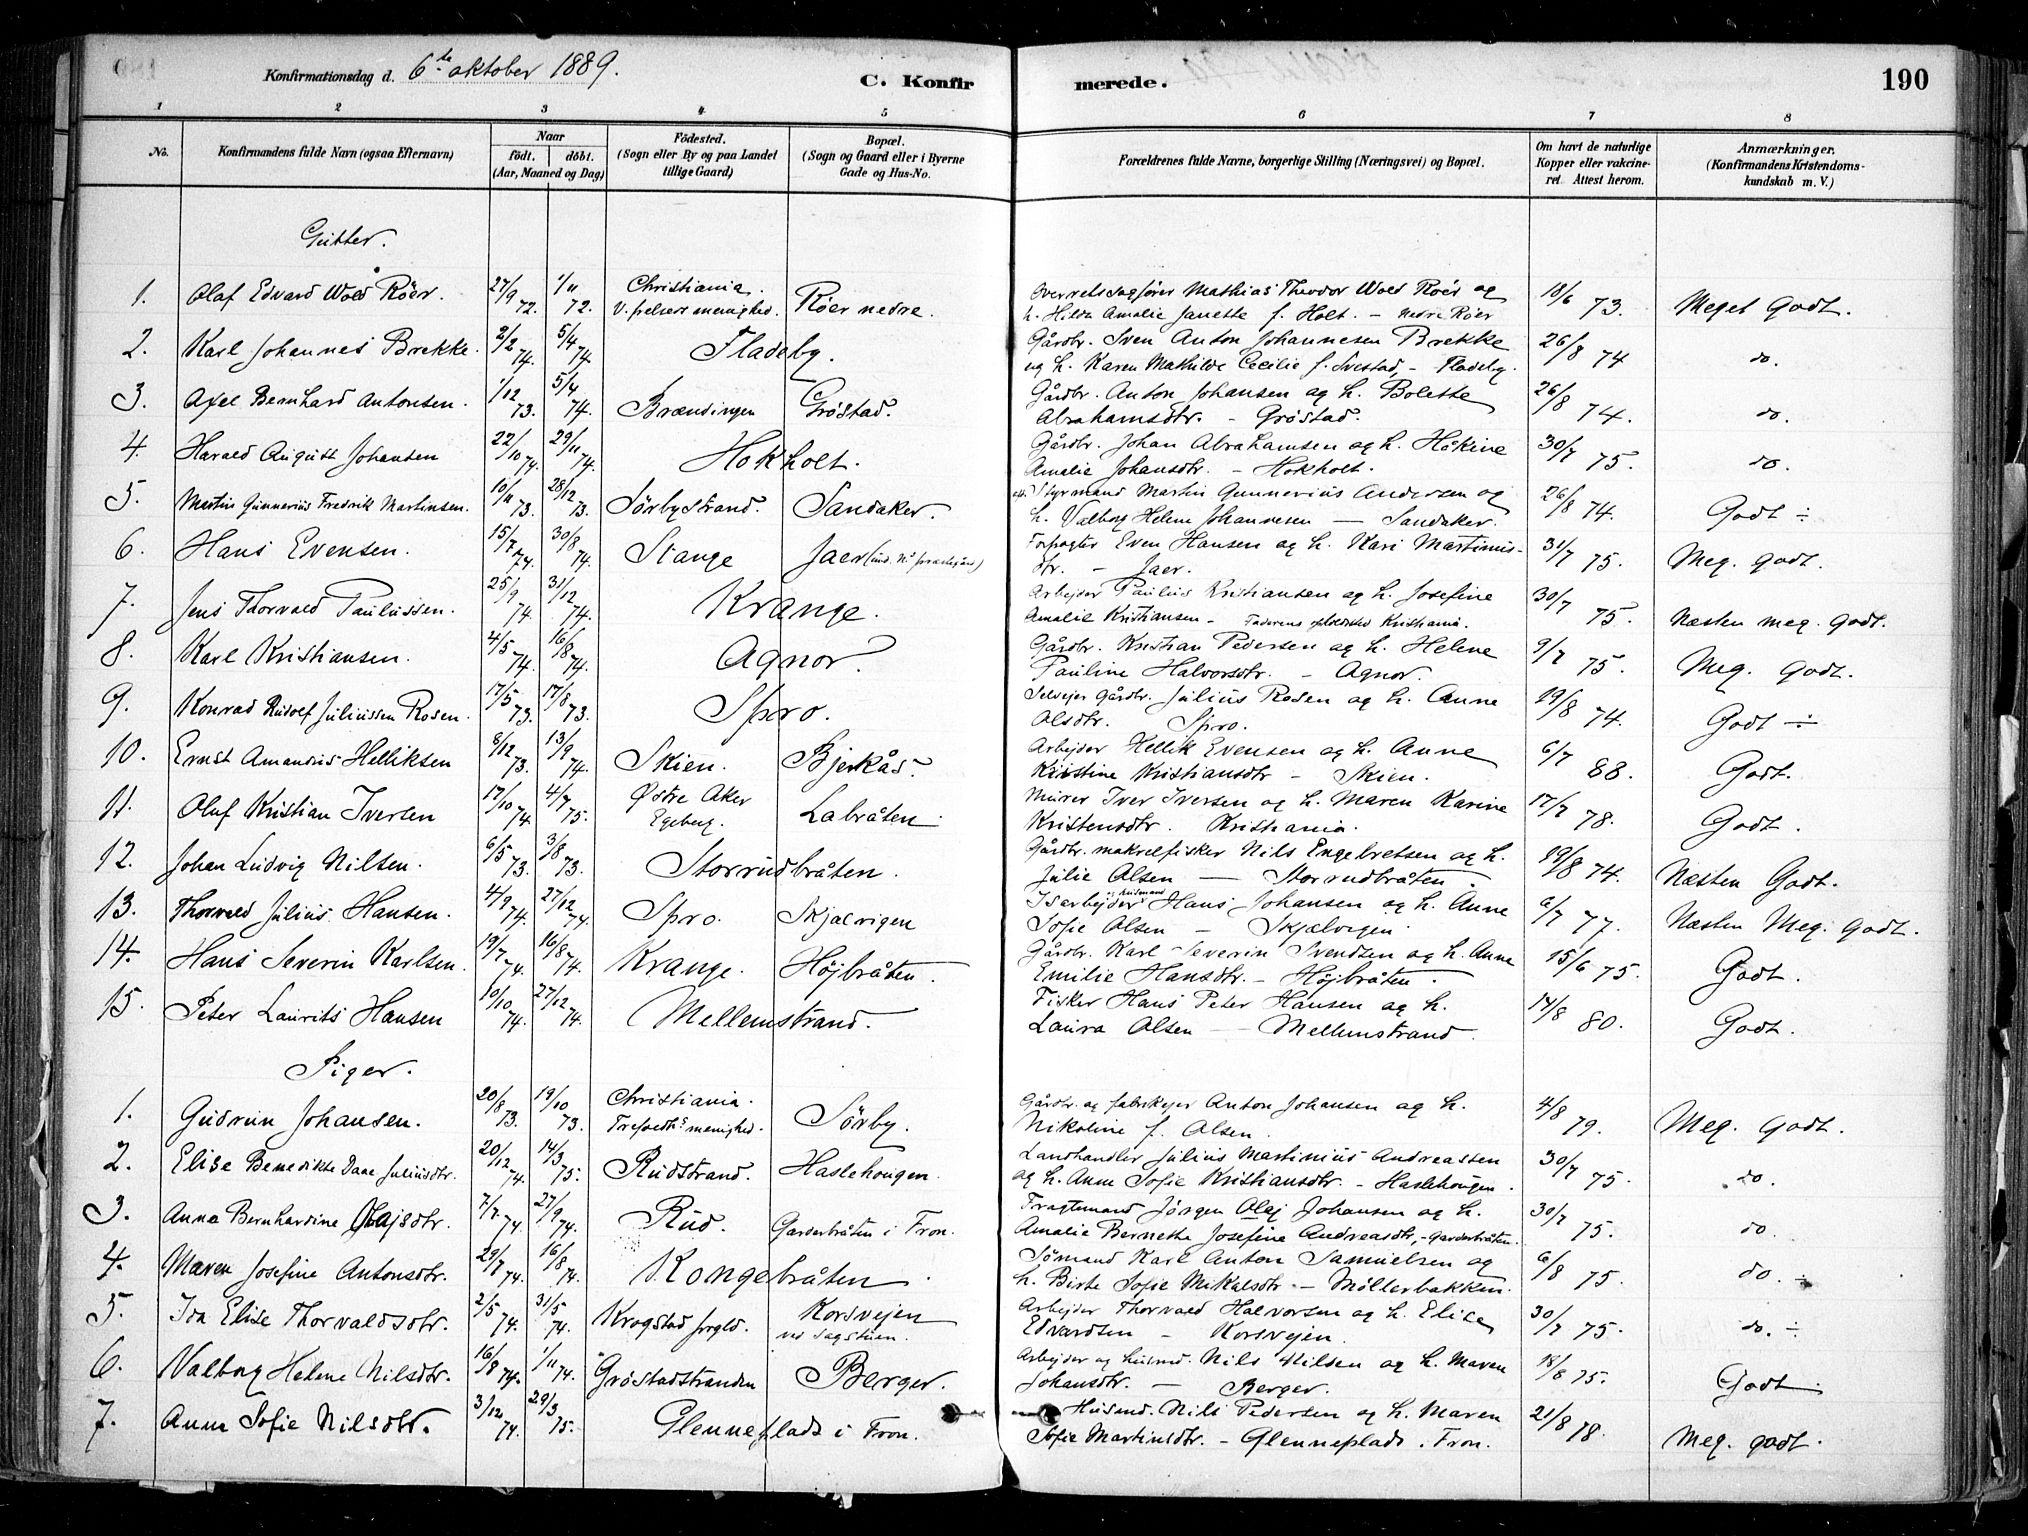 Konfirmationsdag d. 6te oktober 1889.
C. Konfirmerede.
190
1 2 3 4 5 6 7 8
No. Konfirmandens fulde Navn (ogsaa Efternavn) Naar födt. döbt. (Aar, Maaned og Dag) Födested. (Sogn eller By og paa Landet tillige Gaard) Bopæl. (Sogn og Gaard eller i Byerne Gade og Hus-No. Forældrenes fulde Navne, borgerlige Stilling (Næringsvei) og Bopæl. Om havt de naturlige Kopper eller vakcineret. Attest herom. Anmærkninger. (Konfirmandens Kristendomskundskab m. V.)
Gutter.
1. Olaf Edvard Wold Röer. 27/9 72. 1/11 72. Christiania. V. frelsers menighed. Röer nedre. Overretssagfører Mathias Theodor Wold Roér og h. Hilda Amalie Janette f. Holt. - nedre Röer 18/6 73. Meget Godt.
2. Karl Johannes Brekke. 2/2 74. 5/4 74 Fladeby. Gårdbr. Sven Anton Johannesen Brekke og h. Karen Mathilde Cecilie f. Svestad, - Fladeby. 26/8 74 do.
3. Axel Bernhard Antonsen. 1/12 73. 5/4 74. Brændingen Gröstad. Gårdbr. Anton Johansen og h. Bolette Abrahamsdtr. - Gröstad. 26/8 74. do.
4. Harald August Johansen 22/10 74. 29/11 74. Hokholt. Gårdbr. Johan Abrahamsen og h. Hökine Amalie Johansdtr. - Hokholt. 30/7 75. do.
5. Martin Gunnerius Fredrik Martinsen. 10/11 73. 28/12 73. Sörbystrand. Sandaker. Styrmand Martin Gunnerius Andersen og h. Valborg Helene Johannesen - Sandaker. 26/8 74. Godt ÷
6. Hans Evensen. 15/7 74. 30/8 74. Stange Jaer Forpagter Even Hansen og h. Kari Martinusdtr. - Jaer. 31/7 75. Meg. godt.
7. Jens Thorvald Paulussen. 25/9 74. 31/12 74. Krange. Arbejder Paulus Kristiansen og h. Josefine Amalie Kristiansen - Faderens Kristiania. 30/7 75. Næsten meg. godt.
8. Karl Kristiansen. 4/5 74. 16/8 74. Agnor. Gårdbr. Kristian Pedersen og h. Helene Pauline Halvorsdtr. - Agnor. 9/7 75. Meg. godt.
9. Konrad Rudolf Juliussen Rosen. 17/5 73. 17/8 73. Spro. Selvejer Gårdbr. Julius Rosen og h. Anne Olsdtr. Spro. 19/8 74. Godt ÷
10. Ernst Amandus Helliksen 8/12 73. 13/9 74. Skien. Bjerkås. Arbejder Hellik Evensen og h. Anne Kristine Kristiansdtr - Skien. 6/7 88. Godt.
11. Oluf Kristian Iversen 17/10 74. 4/7 75. Østre Aker Egeberg. Labråten. Murer Iver Iversen og h. Maren Karine Kristensdtr. Kristiania. 17/7 78. Godt.
12. Johan Ludvig Nilsen. 6/5 73. 3/8 73. Storrudbråten. Gårdbr. makrelfisker Nils Engebretsen og h. Julie Olsen - Storrudbråten. 19/8 74. Næsten Godt.
13. Thorvald Julius Hansen. 4/9 74. 27/12 74. Spro. Skjælvigen Isarbejder og husmand Hans Johansen og h. Anne Sofie Olsen - Skjelvigen. 6/7 77. Næsten Meg. godt.
14. Hans Severin Karlsen. 19/7 74. 16/8 74. Krange. Höjbråten. Gårdbr. Karl Severin Svendsen og h. Anne Emilie Hansdtr. - Höjbråten. 15/6 75. Godt.
15. Peter Laurits Hansen 10/10 74. 27/12 74. Mellemstrand. Fisker Hans Peter Hansen og h. Laura Olsen - Mellemstrand. 14/8 80. Godt.
Piger.
1. Gudrun Johansen. 20/8 73. 19/10 73. Christiania. Trefoldhs menighed. Sörby. Gårdbr. og fabrikejer Anton Johansen og h. Nikoline f. Olsen. 4/8 79. Meg. godt.
2. Elise Benedikte Dane Juliusdtr. 20/12 74. 14/3 75. Rudstrand. Haslehougen. Landhandler Julius Martinius Andreassen og h. Anne Sofie Kristiansdtr. - Haslehougen. 30/7 75. do.
3. Anna Bernhardine Olajsdtr. 7/7 74. 27/9 74. Rud. Garderbråten i Fron. Fragtmand Jörgen Olaj Johansen og h. Amalie Bernette Josefine Andreasdtr, - Garderbråten. 30/7 75. do.
4. Maren Josefine Antonsdtr. 29/7 74. 16/8 74. Kongebråten. Sömand Karl Anton Samuelsen og h. Birte Sofie Mikalsdtr. - Möllerbakken. 6/8 75. do. ÷
5. Ida Elise Thorvaldsdtr. 2/5 74. 31/5 74. Krogstad prgld. Korsvejen ved Sagstuen. Arbejder Thorvald Halvorsen og h. Elise Edvardsen - Korsvejen. 30/7 75. do. ÷
6. Valborg Helene Nilsdtr. 16/8 74. 1/11 74. Gröstadstranden Berger. Arbejder og husmd. Nils Nilsen og h. Maren Johansdtr. - Berger. 18/8 75. Godt.
7. Anna Sofie Nilsdtr. 3/12 74. 29/3 75. Glenneplads i Fron. Husmd. Nils Pedersen og h. Maren Sofie Martinsdtr. - Glenneplads i Fron. 21/8 78. Meg. godt.